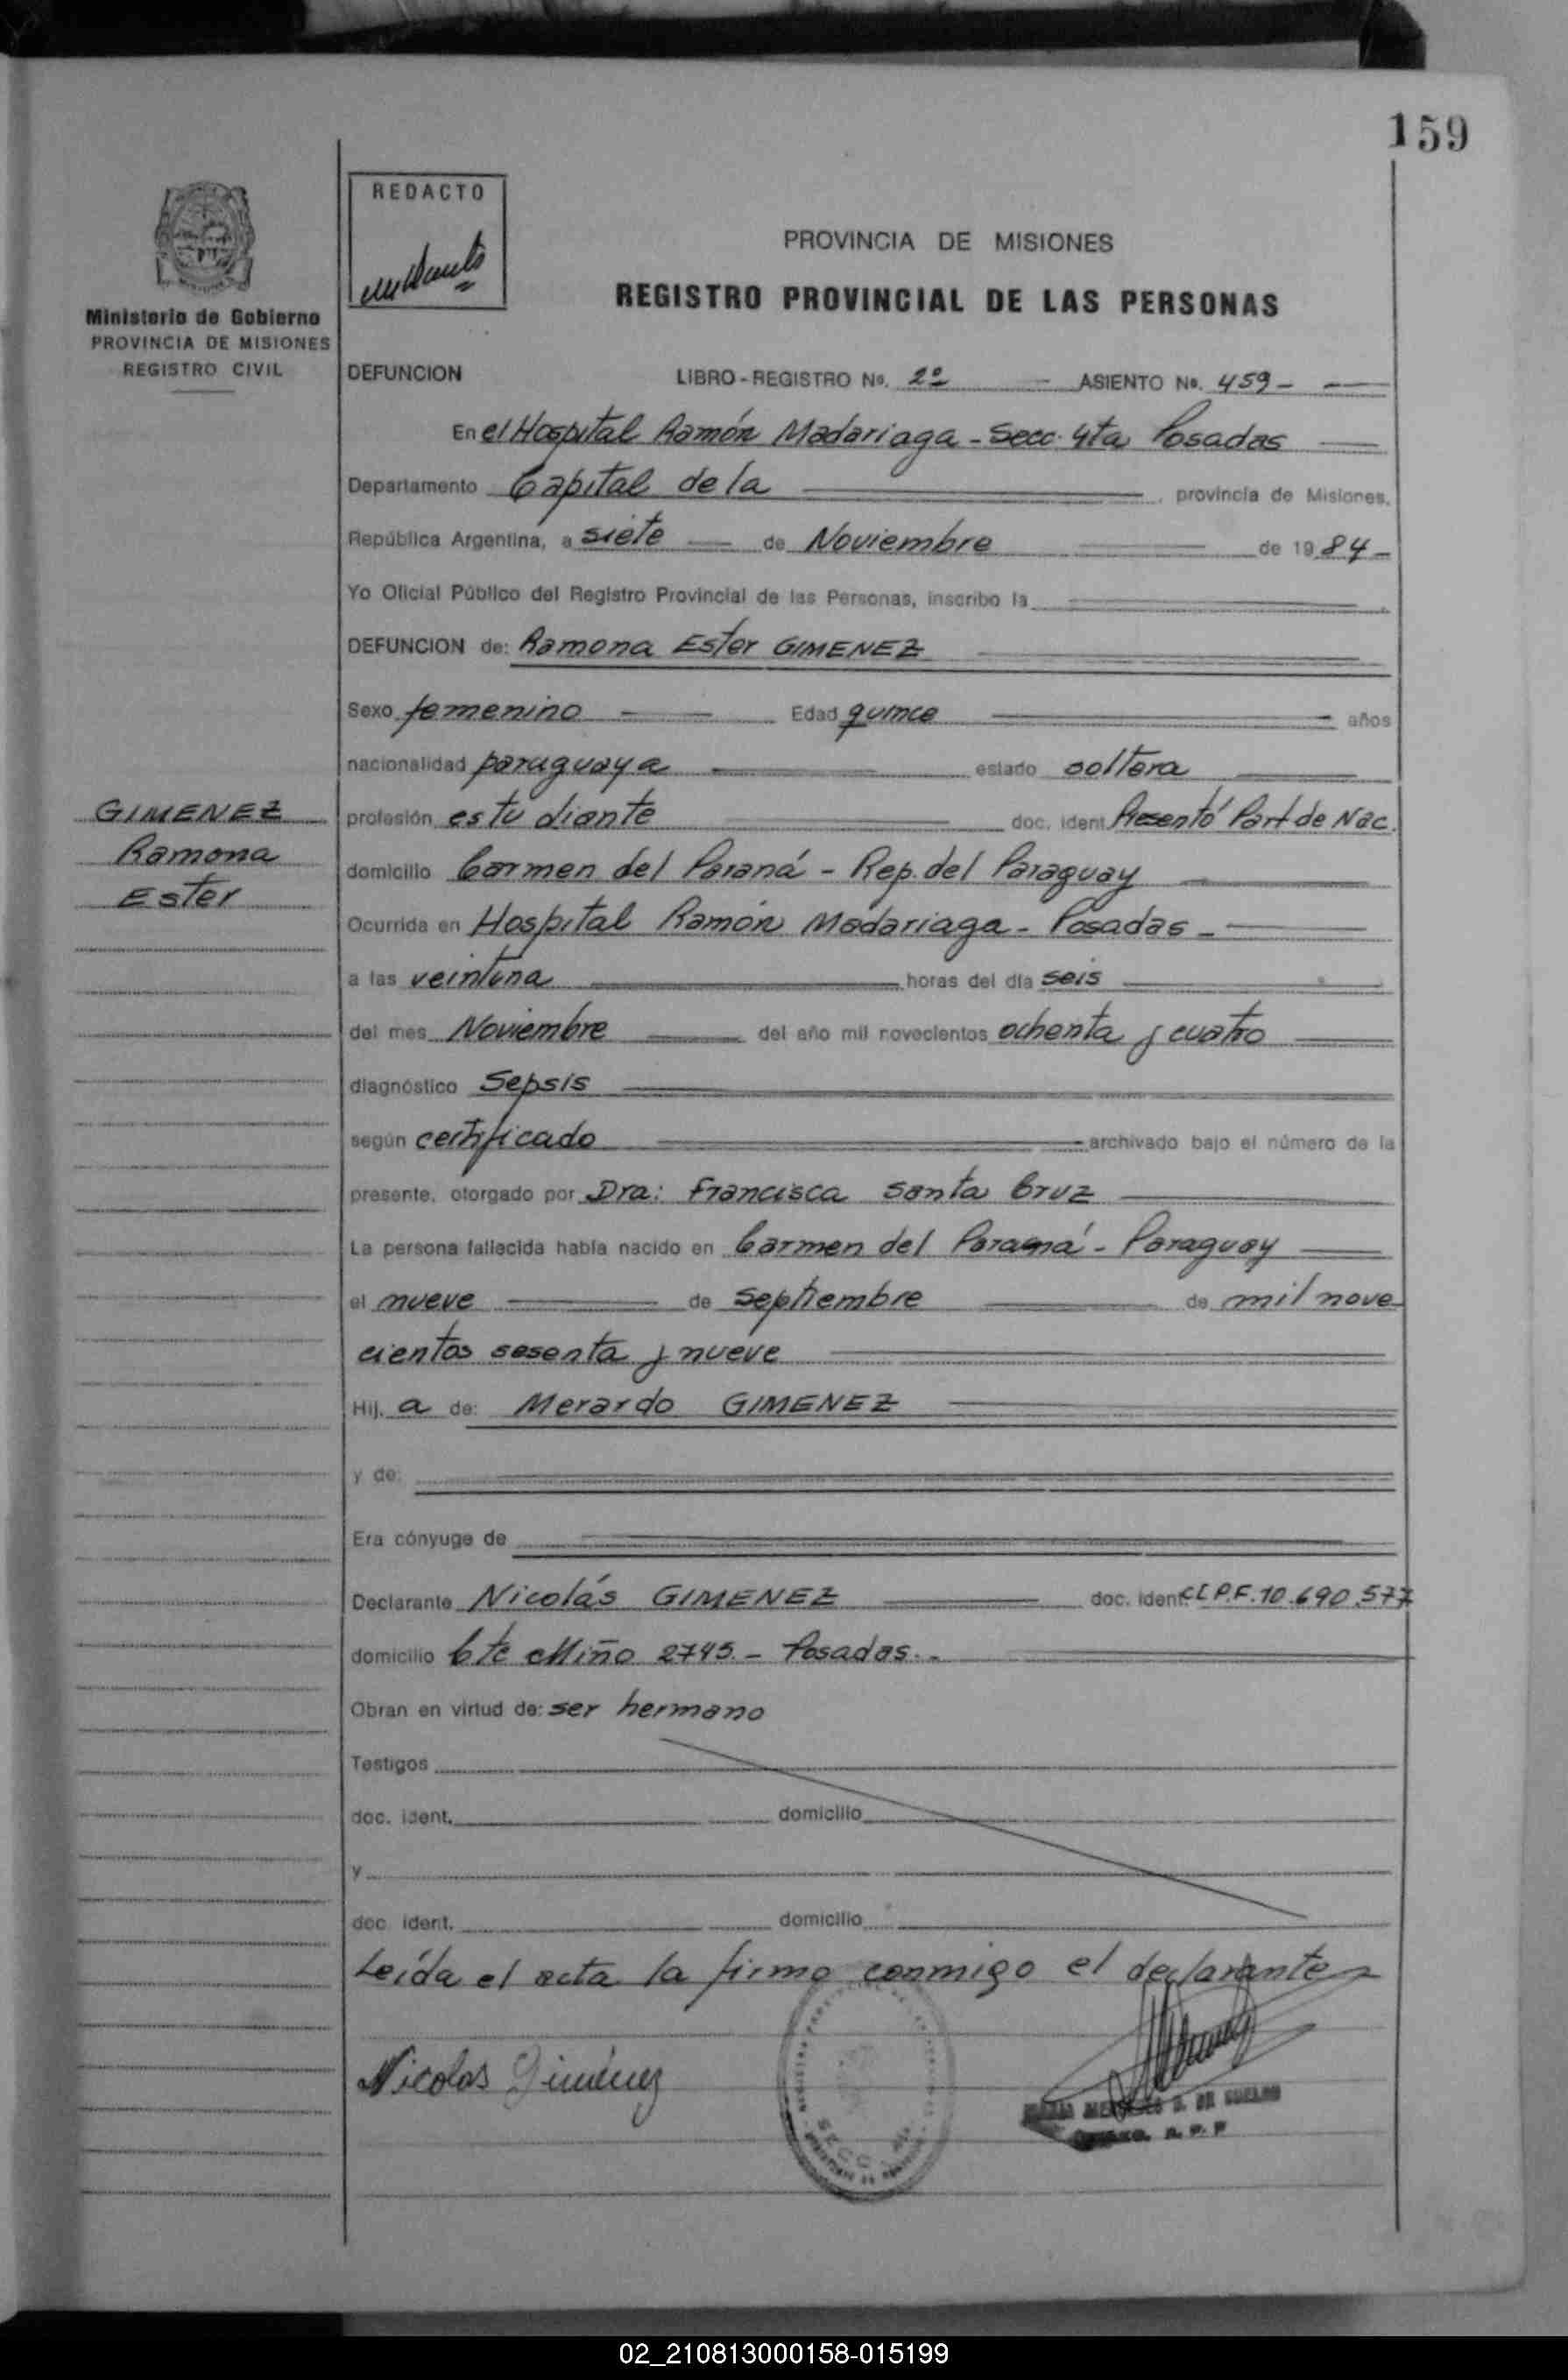 159
REDACTO
PROVINCIA DE MISIONES
REGISTRO PROVINCIAL DE LAS PERSONAS
Ministerio de Gobierno
PROVINCIA DE MISIONES
REGISTRO CIVIL
DEFUNCION LIBRO - REGISTRO No. 2º ASIENTO No. 459 -
En el Hospital Ramón Madariaga - Secc. 4ta Posadas
Departamento Capital de la provincia de Misiones,
República Argentina, a siete de Noviembre de 1984 -
Yo Oficial Público del Registro Provincial de las Personas, inscribo la
DEFUNCION de: Ramona Ester GIMENEZ
Sexo femenino Edad quince años
nacionalidad paraguaya estado soltera
GIMENEZ
Ramona
Ester
profesión estudiante doc. ident. Presentó Part de Nac.
domicilio Carmen del Paraná - Rep. del Paraguay
Ocurrida en Hospital Ramón Madariaga - Posadas -
a las veintuna horas del día seis
del mes Noviembre del año mil novecientos ochenta y cuatro
diagnóstico Sepsis
según certificado archivado bajo el número de la
presente, otorgado por Dra: Francisca Santa Cruz
La persona fallecida había nacido en Carmen del Paraná - Paraguay
el nueve de septiembre de mil nove
cientos sesenta y nueve
Hij. a de: Merardo GIMENEZ
y de:
Era cónyuge de
Declarante Nicolás GIMENEZ doc. ident. C.I.P.F. 10.690.577
domicilio Cte Miño 2745. - Posadas. -
Obran en virtud de: ser hermano
Testigos
doc. ident. domicilio
y
doc. ident. domicilio
Leída el acta la firma conmigo el declarante
Nicolas Giménez
SECC.
02_210813000158-015199